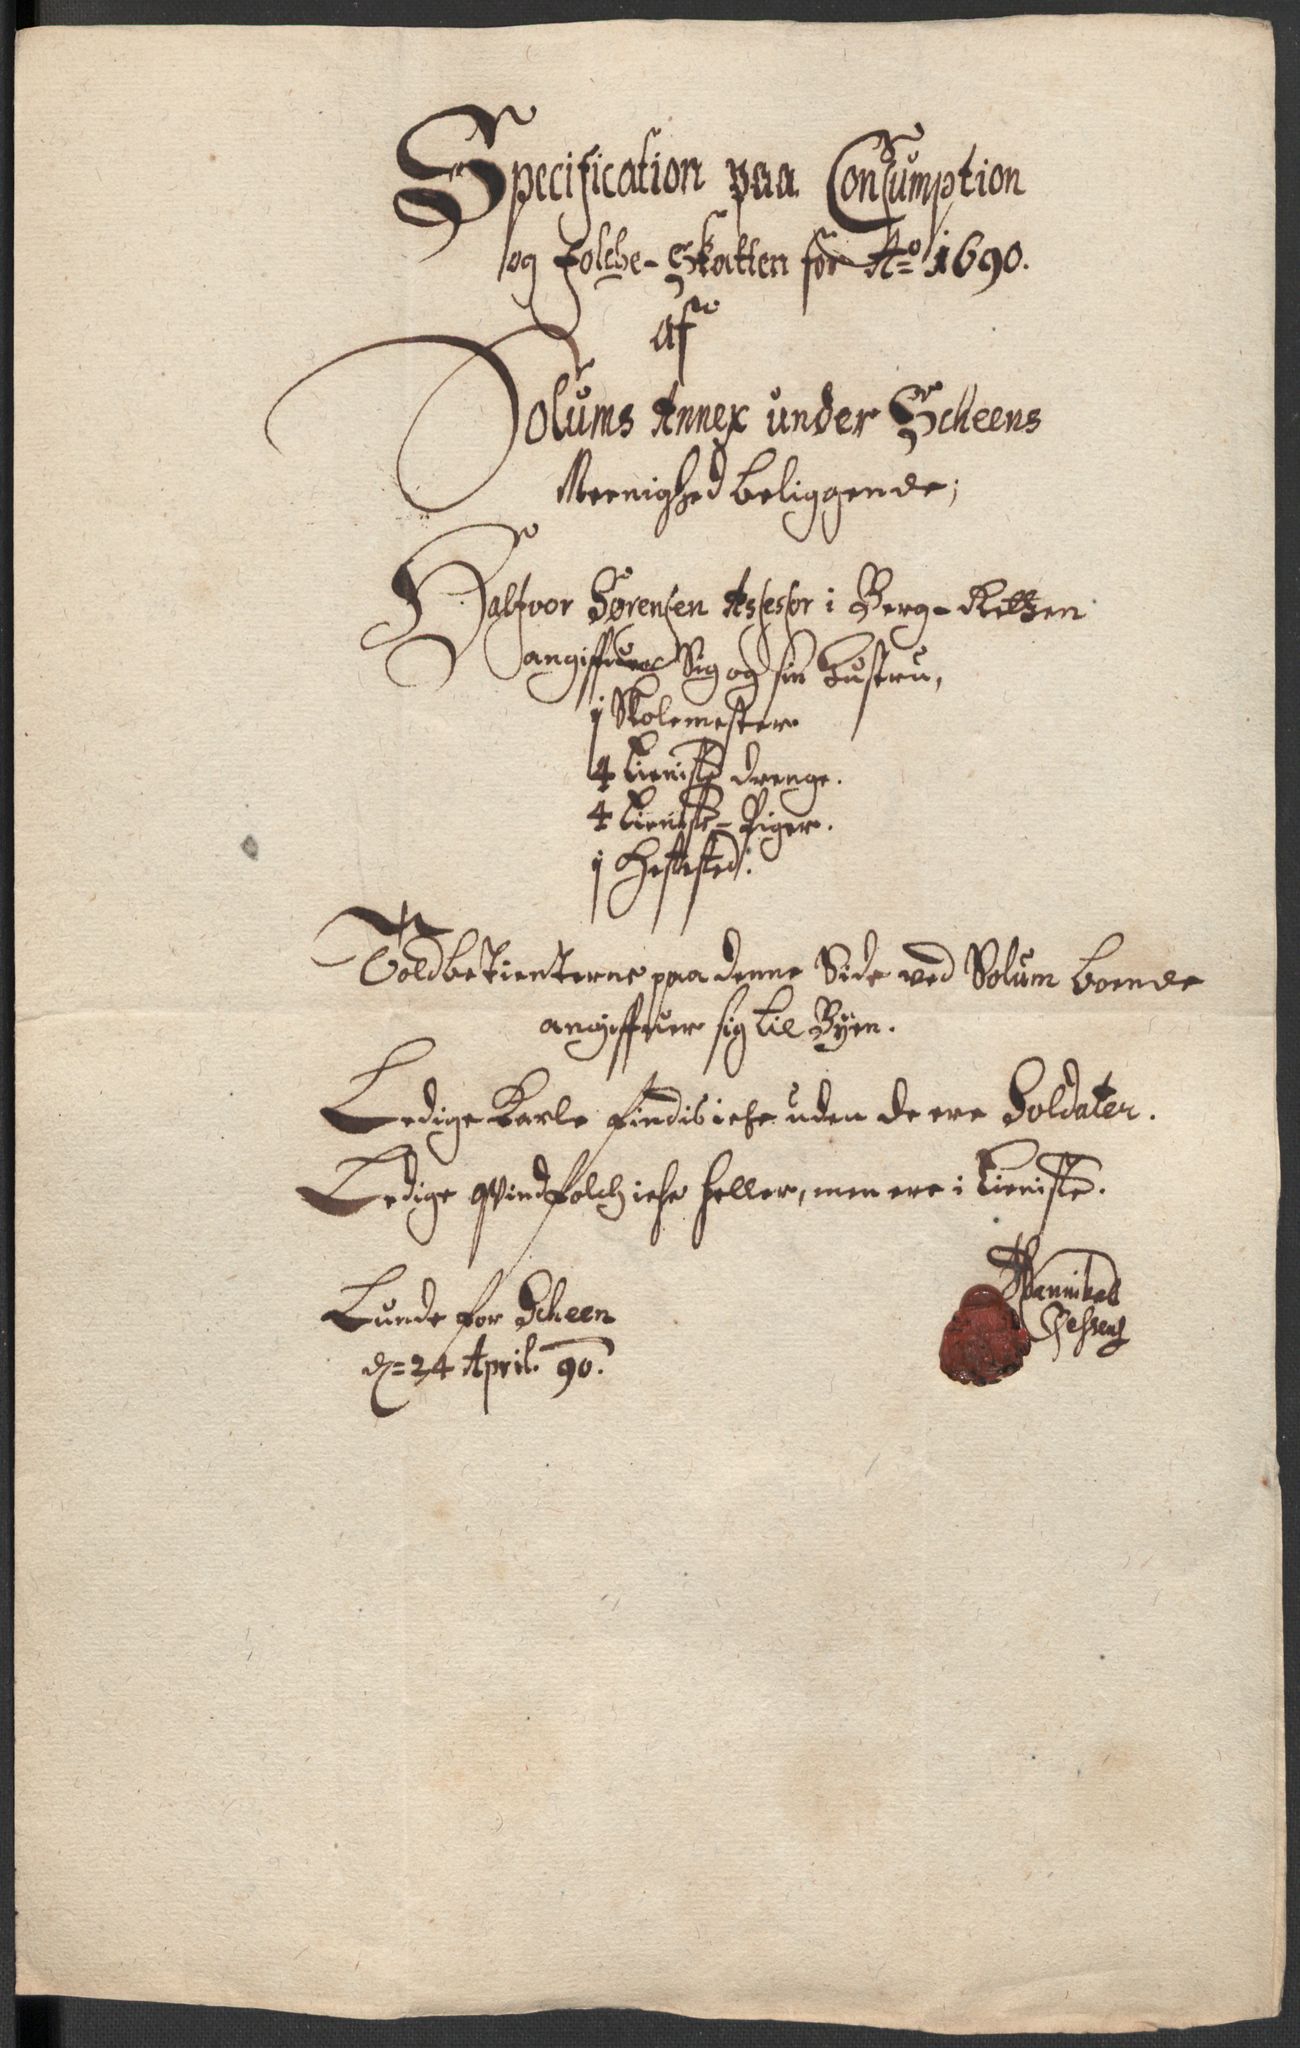 Specification paa Consumption
og folche-Skatten for Ao 1690.
af
Solums Annex under Scheens
Meenighed beliggende;
Halfvor Sørensen Assessor i Berg-Retten
angiffuer Sig og sin hustru,
1 Skolemester
4 tieniste drenge.
4 tieniste-Piger.
1 Hestested.
Toldbetienterne paa denne Side ved Solum boende
angiffuer sig til Byen.
Ledige Karle findis iche uden de ere Soldater.
Ledige qvindfolch iche heller, men ere i tieniste.
Lunde for Scheen
d= 24 April. 90.